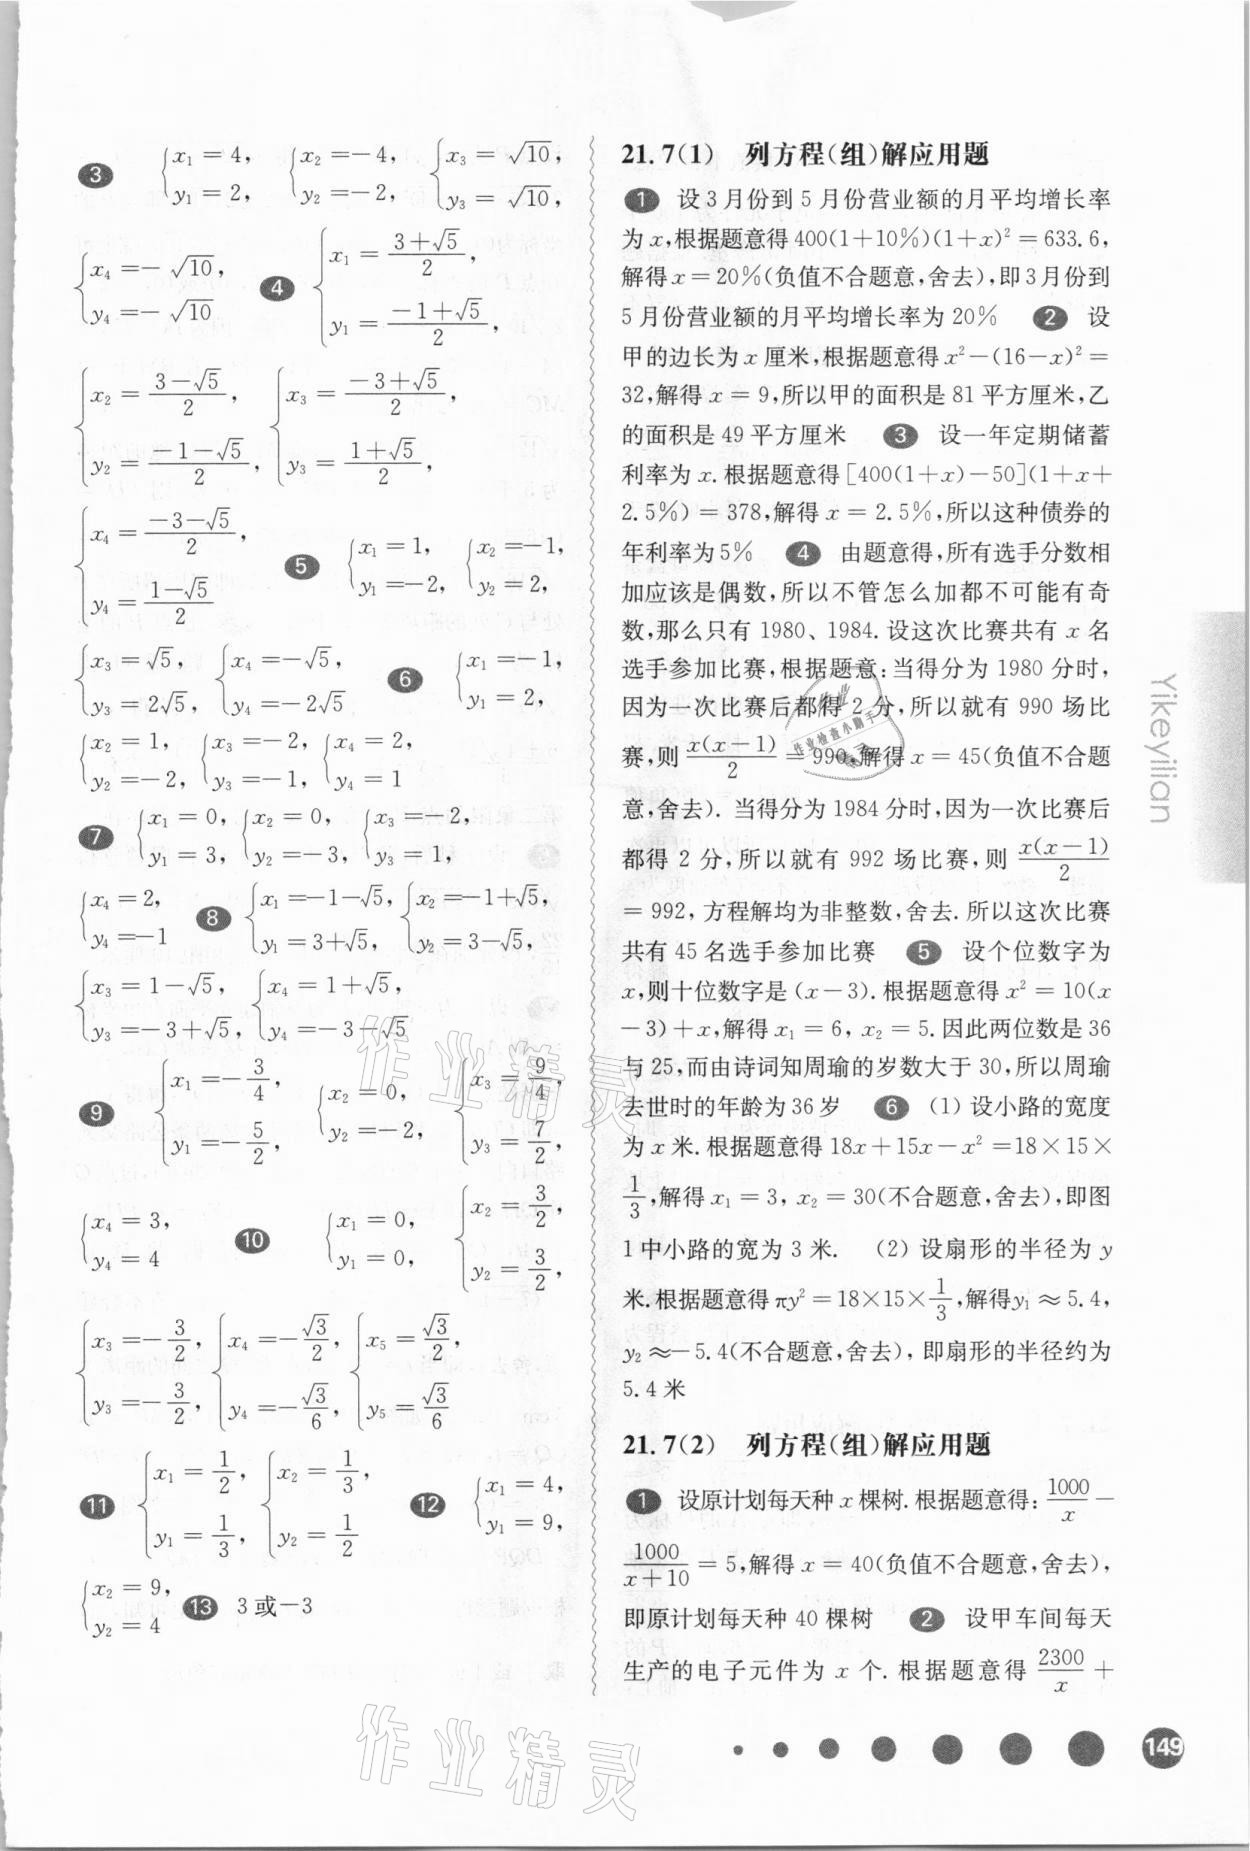 3 {x₁=4, y₁=2, {x₂=-4, y₂=-2, {x₃=√10, y₃=√10,
{x₄=-√10, y₄=-√10 4 {x₁=(3+√5)/2, y₁=(-1+√5)/2,
{x₂=(3-√5)/2, y₂=(-1-√5)/2, {x₃=(-3+√5)/2, y₃=(1+√5)/2,
{x₄=(-3-√5)/2, y₄=(1-√5)/2 5 {x₁=1, y₁=-2, {x₂=-1, y₂=2,
{x₃=√5, y₃=2√5, {x₄=-√5, y₄=-2√5 6 {x₁=-1, y₁=2,
{x₂=1, y₂=-2, {x₃=-2, y₃=-1, {x₄=2, y₄=1
7 {x₁=0, y₁=3, {x₂=0, y₂=-3, {x₃=-2, y₃=1,
{x₄=2, y₄=-1 8 {x₁=-1-√5, y₁=3+√5, {x₂=-1+√5, y₂=3-√5,
{x₃=1-√5, y₃=-3+√5, {x₄=1+√5, y₄=-3-√5
9 {x₁=-3/4, y₁=-5/2, {x₂=0, y₂=-2, {x₃=9/4, y₃=7/2,
{x₄=3, y₄=4 10 {x₁=0, y₁=0, {x₂=3/2, y₂=3/2,
{x₃=-3/2, y₃=-3/2, {x₄=-√3/2, y₄=-√3/6 {x₅=√3/2, y₅=√3/6
11 {x₁=1/2, y₁=1/3, {x₂=1/3, y₂=1/2 12 {x₁=4, y₁=9,
{x₂=9, y₂=4 13 3或-3
21.7(1) 列方程(组)解应用题
1 设3月份到5月份营业额的月平均增长率
为x,根据题意得400(1+10%)(1+x)²=633.6,
解得x=20%(负值不合题意,舍去),即3月份到
5月份营业额的月平均增长率为20% 2 设
甲的边长为x厘米,根据题意得x²-(16-x)²=
32,解得x=9,所以甲的面积是81平方厘米,乙
的面积是49平方厘米 3 设一年定期储蓄
利率为x.根据题意得[400(1+x)-50](1+x+
2.5%)=378,解得x=2.5%,所以这种债券的
年利率为5% 4 由题意得,所有选手分数相
加应该是偶数,所以不管怎么加都不可能有奇
数,那么只有1980、1984.设这次比赛共有x名
选手参加比赛,根据题意:当得分为1980分时,
因为一次比赛后都得2分,所以就有990场比
赛,则x(x-1)/2=990,解得x=45(负值不合题
意,舍去).当得分为1984分时,因为一次比赛后
都得2分,所以就有992场比赛,则x(x-1)/2
=992,方程解均为非整数,舍去.所以这次比赛
共有45名选手参加比赛 5 设个位数字为
x,则十位数字是(x-3).根据题意得x²=10(x
-3)+x,解得x₁=6,x₂=5.因此两位数是36
与25,而由诗词知周瑜的岁数大于30,所以周瑜
去世时的年龄为36岁 6 (1)设小路的宽度
为x米.根据题意得18x+15x-x²=18×15×
1/3,解得x₁=3,x₂=30(不合题意,舍去),即图
1中小路的宽为3米. (2)设扇形的半径为y
米.根据题意得πy²=18×15×1/3,解得y₁≈5.4,
y₂≈-5.4(不合题意,舍去),即扇形的半径约为
5.4米
21.7(2) 列方程(组)解应用题
1 设原计划每天种x棵树.根据题意得:1000/x-
1000/(x+10)=5,解得x=40(负值不合题意,舍去),
即原计划每天种40棵树 2 设甲车间每天
生产的电子元件为x个.根据题意得2300/x+
Yikeyilian
149
作业检查小助手
作业精灵
作业精灵